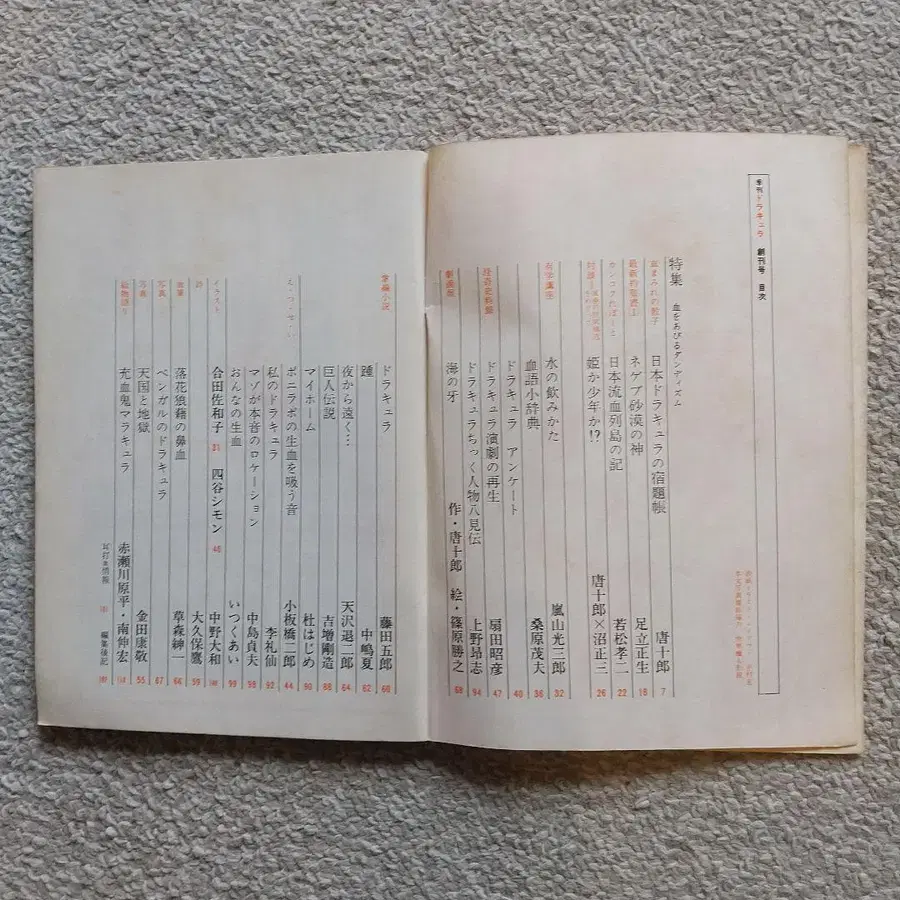 季刊ドラキュラ 創刊号 目次
特集 血をおびるダンディズム
日本ドラキュラの宿題帳 唐十郎 7
ネゲブ砂漠の神 足立正生 18
日本流血列島の記 若松孝二 22
姫か少年か!? 唐十郎×沼正三 26
水の飲みかた 嵐山光三郎 32
血語小辞典 桑原茂夫 36
ドラキュラ アンケート 40
ドラキュラ演劇の再生 扇田昭彦 47
ドラキュラちっく人物八見伝 上野昂志 94
海の牙 作・唐十郎 絵・篠原勝之 68
掌篇小説
ドラキュラ 藤田五郎 60
踵 中嶋夏 62
夜から遠く… 天沢退二郎 64
巨人伝説 吉増剛造 88
マイホーム 杜はじめ 90
え・つ・せ・い
ポニラポの生血を吸う音 小板橋二郎 44
私のドラキュラ 李礼仙 92
マゾが本音のロケーション 中島貞夫 98
おんなの生血 いつくあい 99
イラスト
合田佐和子 31 四谷シモン 46
中野大和 100
詩
大久保鷹 59
落花狼藉の鼻血 草森紳一 66
写真
ベンガルのドラキュラ 67
写真
天国と地獄 金田康敬 55
絵物語り
充血鬼マラキュラ 赤瀬川原平・南伸宏
編集後記